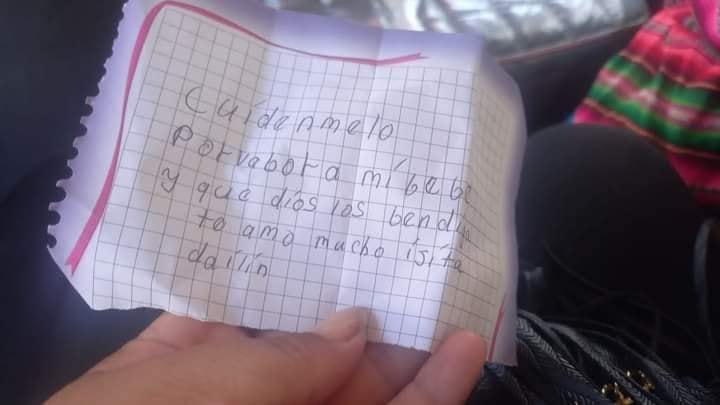 Cuídenmelo
porvabora mí bebe
y que díos los bendiga
te amo mucho ísíta
daílín